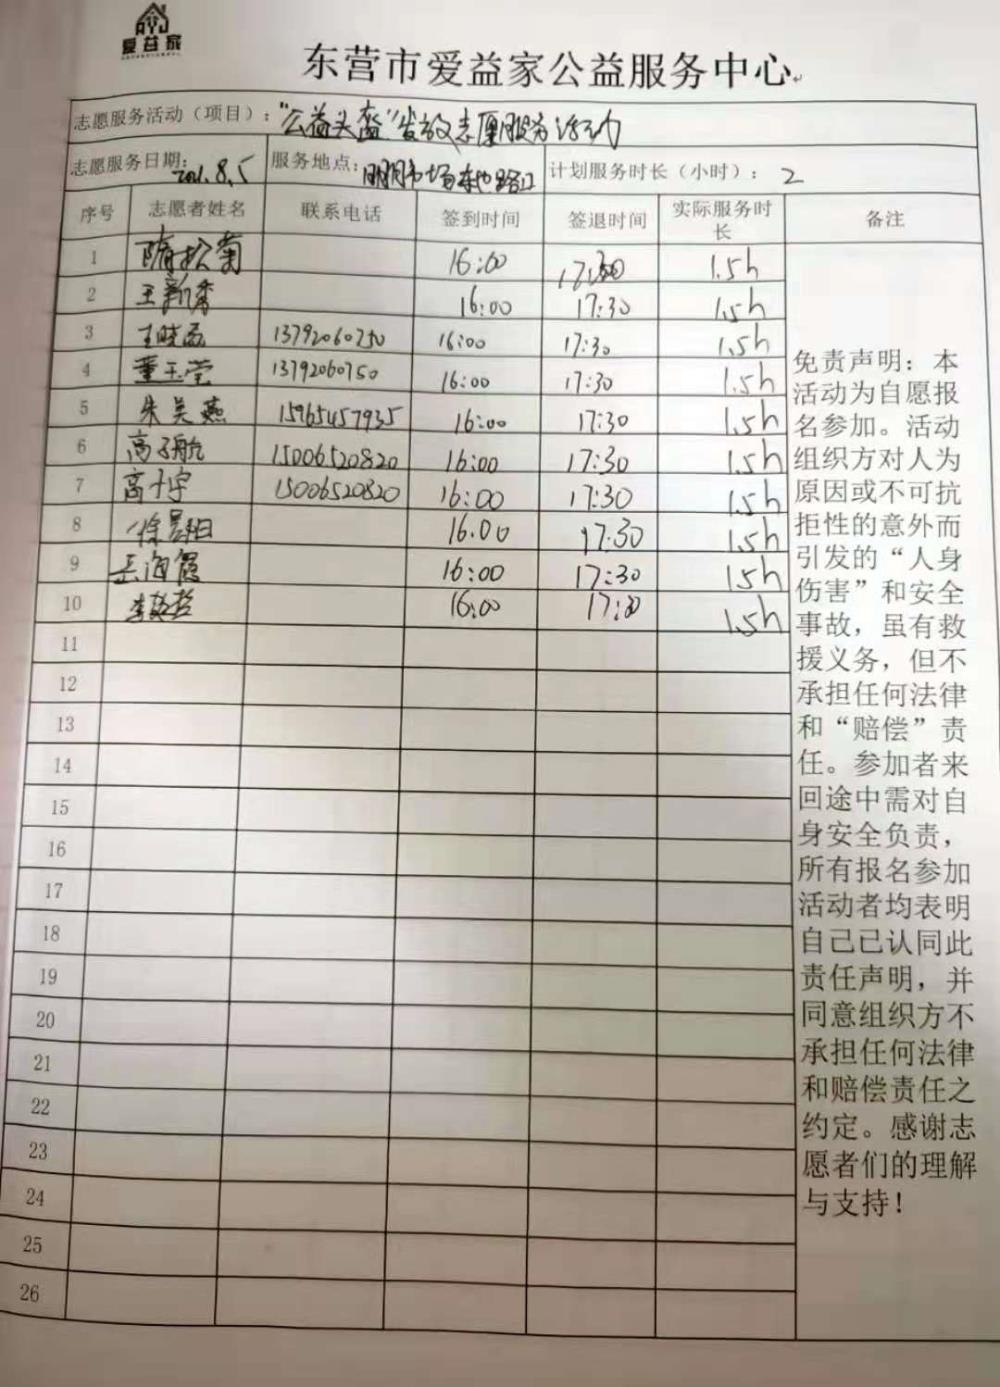 爱益家
东营市爱益家公益服务中心
志愿服务活动（项目）：“公益头盔”发放志愿服务活动
志愿服务日期：2021.8.5 服务地点： 计划服务时长（小时）：2
序号 志愿者姓名 联系电话 签到时间 签退时间 实际服务时长 备注
1 隋松菊 16:00 17:30 1.5h
2 王新香 16:00 17:30 1.5h
3 13792060750 16:00 17:30 1.5h
4 董玉莹 13792060750 16:00 17:30 1.5h
5 朱吴燕 15965457935 16:00 17:30 1.5h
6 高子航 15006520820 16:00 17:30 1.5h
7 高子宇 15006520820 16:00 17:30 1.5h
8 徐晨阳 16.00 17:30 1.5h
9 岳海霞 16:00 17:30 1.5h
10 16:00 17:30 1.5h
11
12
13
14
15
16
17
18
19
20
21
22
23
24
25
26
免责声明：本
活动为自愿报
名参加。活动
组织方对人为
原因或不可抗
拒性的意外而
引发的“人身
伤害”和安全
事故，虽有救
援义务，但不
承担任何法律
和“赔偿”责
任。参加者来
回途中需对自
身安全负责，
所有报名参加
活动者均表明
自己已认同此
责任声明，并
同意组织方不
承担任何法律
和赔偿责任之
约定。感谢志
愿者们的理解
与支持！